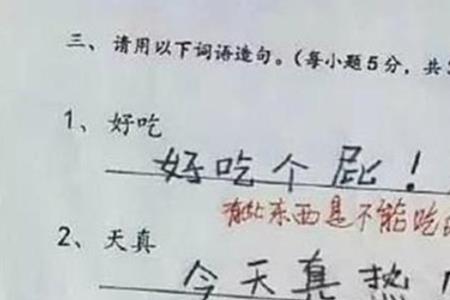 三、请用以下词语造句。(每小题5分,共
1、好吃
好吃个屁!
有些东西是不能吃
2、天真
今天真热